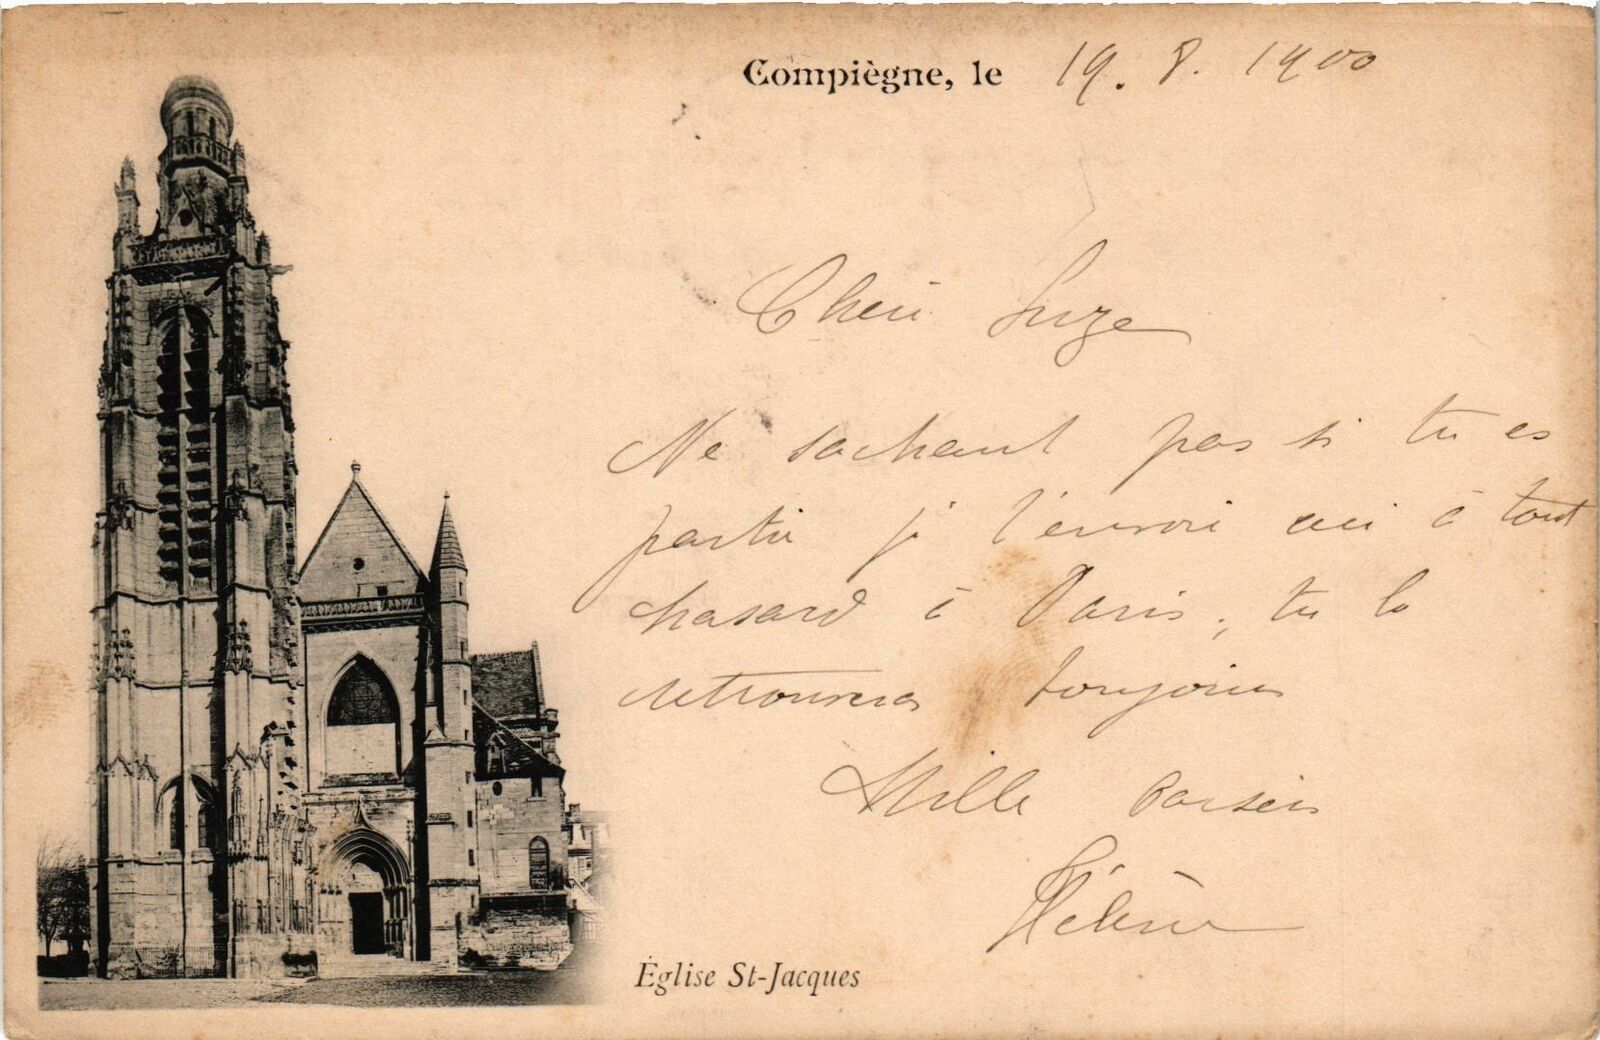 Compiègne, le 19. 8. 1900
Cheri Suze
Ne sachant pas si tu es
partie je t'envoie ceci à tout
hasard à Paris, tu la
retrouveras toujours
Mille baisers
Hélène
Église St-Jacques